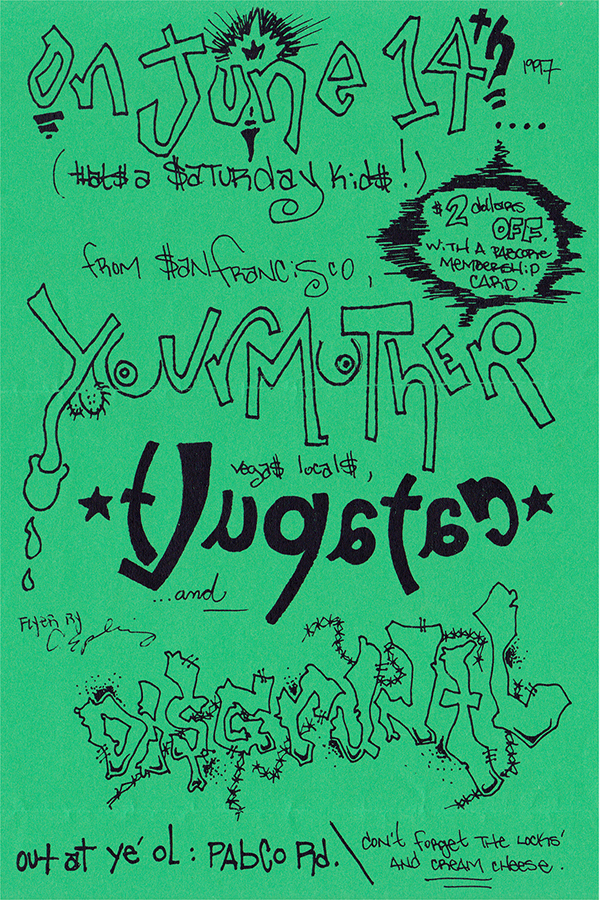 On June 14th 1997 ....
(that$ a $aturday kid$!)
$2 dollars
OFF.
WiTH A PABCORE
MEMBERSHiP
CARD.
from $anfranci$co,
YOURMOTHER
vega$ local$,
catapult
...and
FLyER By
C Epling
out at ye' oL: PABCO Rd.
don't forget THE LOCKS'
AND CREAM CHEESE.